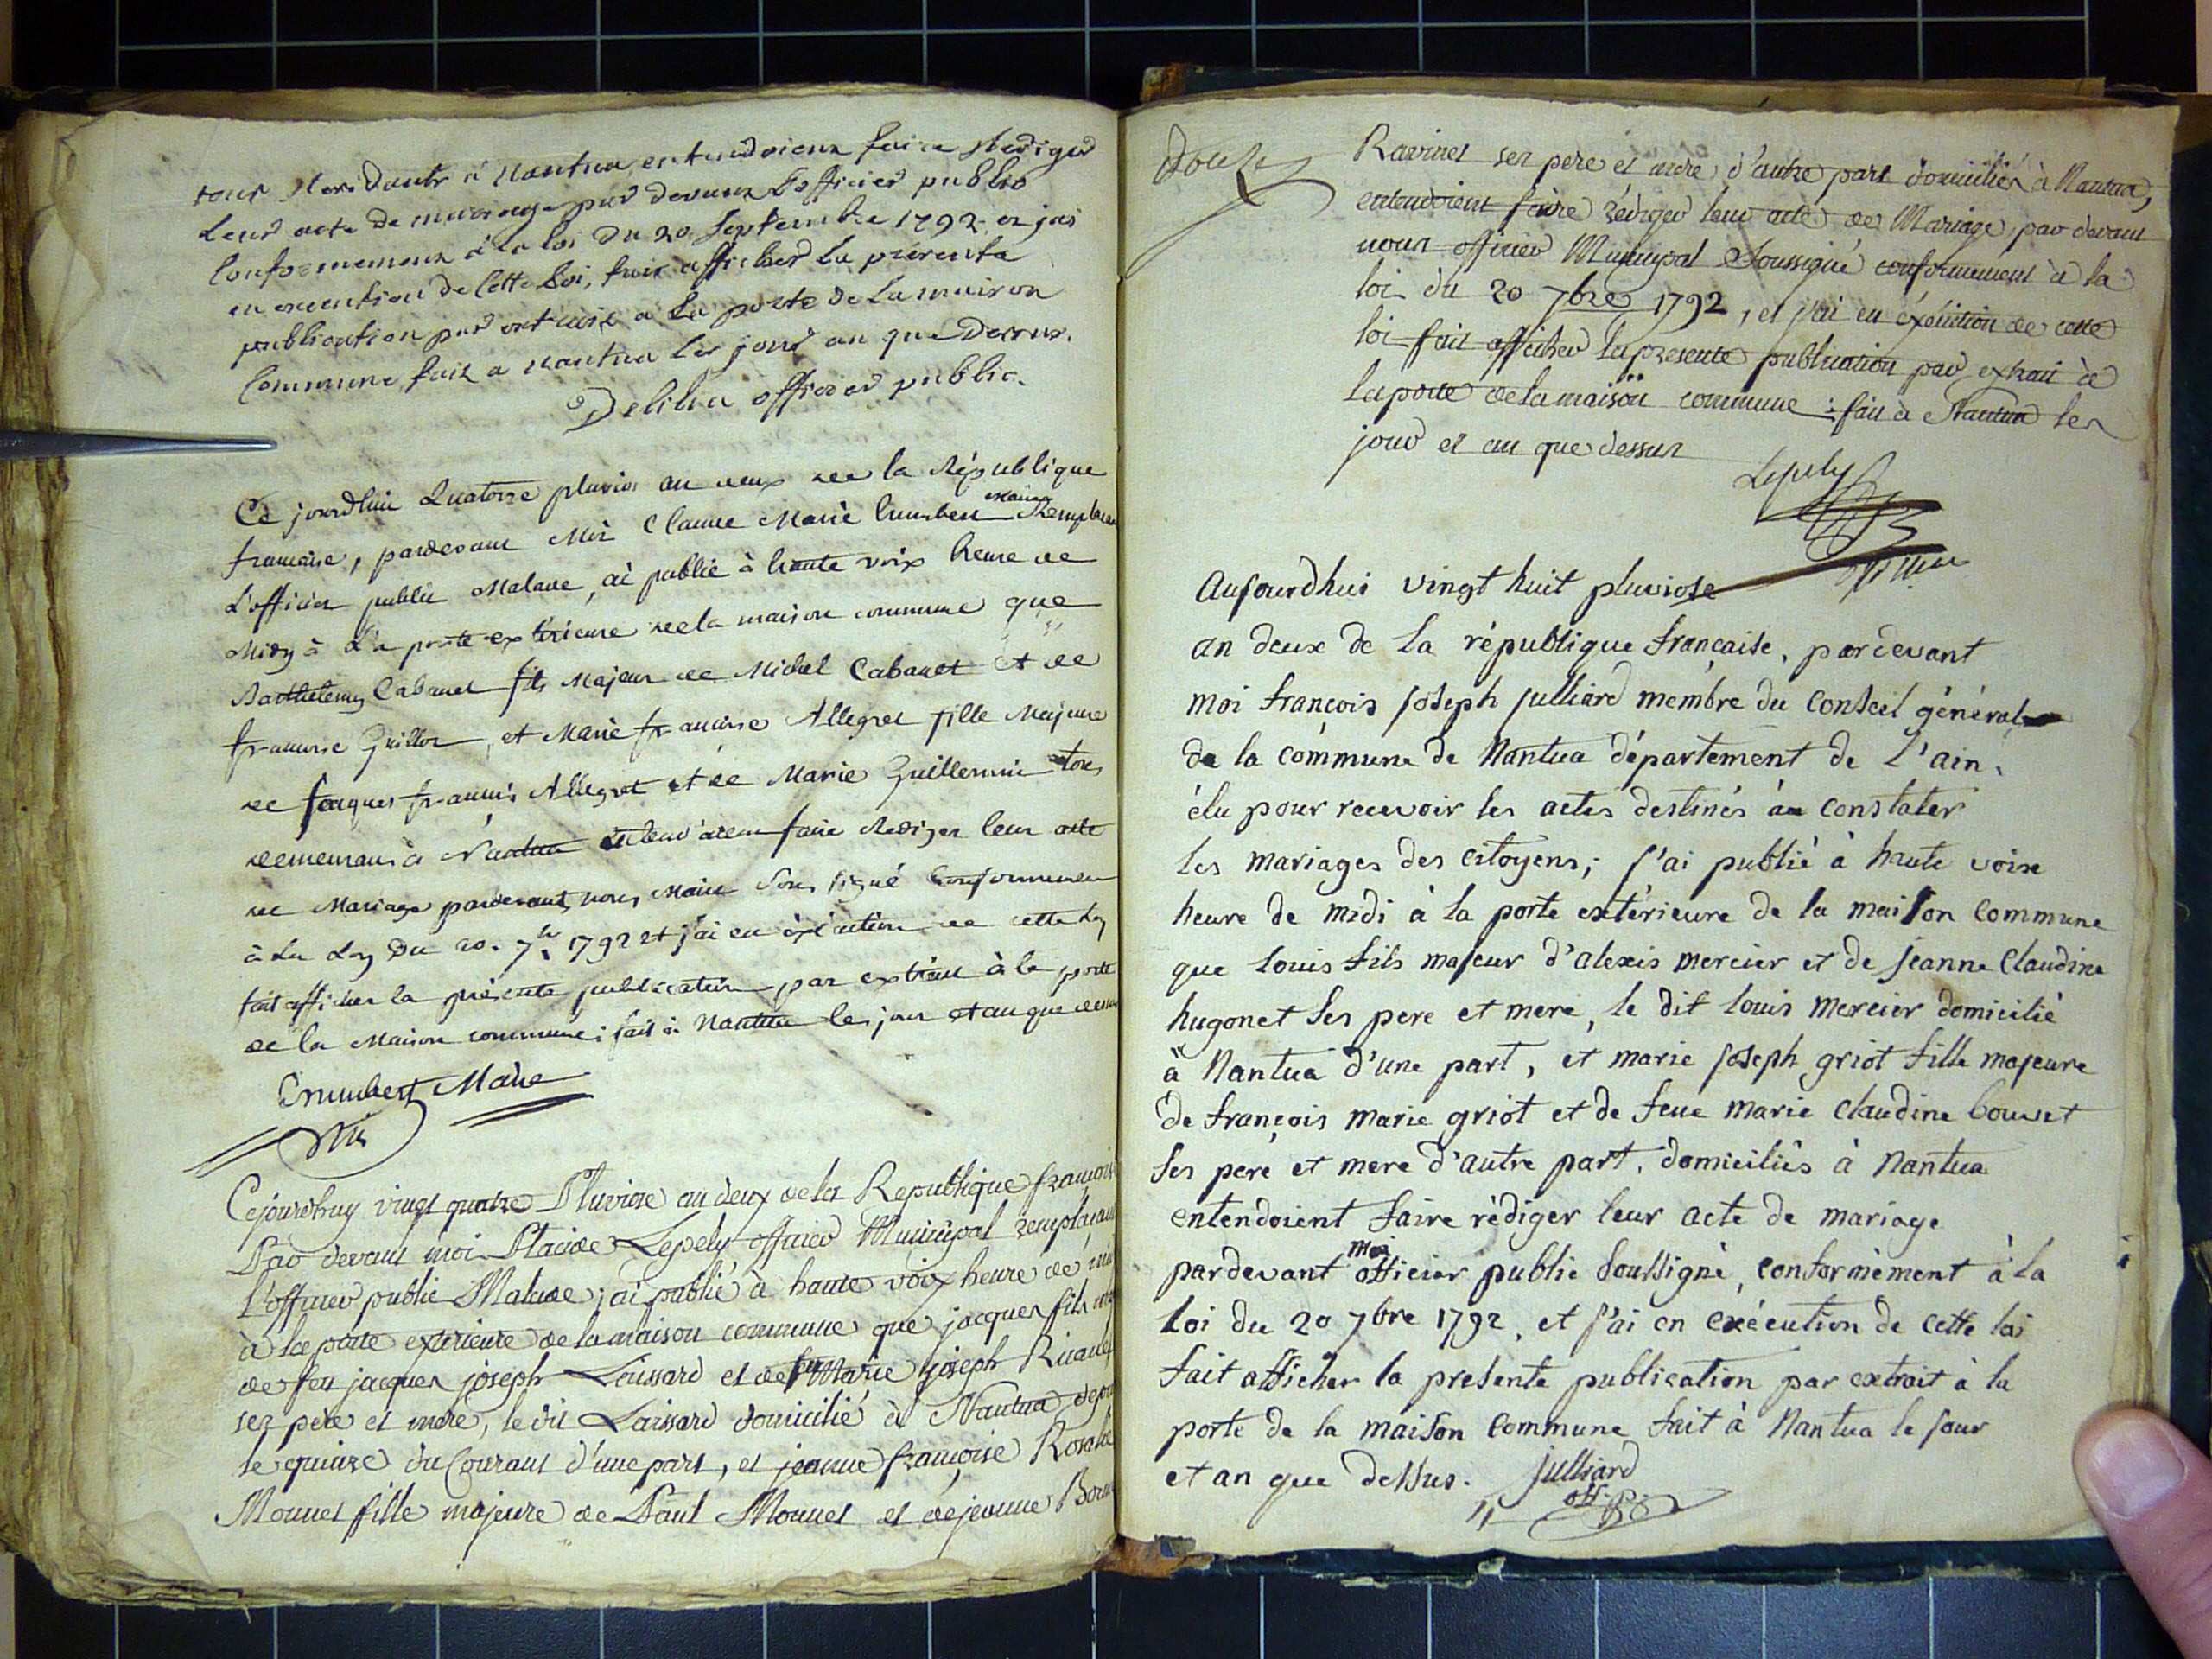 tous Residants à Nantua entendoient faire Rediger
Leur acte de mariage par devant L'officier public
Conformement à la loi du 20 Septembre 1792. et jai
en execution de Cette Loi, fait afficher La présente
publication par extrait a La porte de La maison
Commune fait a nantua les jour an que Dessus.
Delilia officier public.
Ce jourdhui Quatorze pluvios an deux de la République
francaise, pardevant Moi Claude Marie Crumbert Maire Remplacant
L'officier public Malade, ai publié à haute voix heure de
Midy à La porte extérieure de la maison commune que
Barthelemy Cabanet fils Majeur de Michel Cabanet et de
francoise Guillot, et Marie francoise Allegret fille Majeure
de Jacques francois Allegret et de Marie Guillermin tous
demeurans à Nantua entendoient faire Rediger leur acte
de Mariage pardevant nous Maire Sous signé Conformement
à La Loy Du 20. 7bre 1792 et j'ai en exécution de cette Loy
fait afficher la présente publication par extrait à la porte
de la Maison commune; fait à Nantua les jour et an que dessus
Crumbert Maire
Cejourdhuy vingt quatre Pluviose an deux de la Republique françois
Par devant moi Placide Lepely officier Municipal remplaçant
L'officier public Malade; ai publié à haute voix heure de mi
à la porte exterieure de la maison commune que jacques fils
de feu jacques joseph Laissard et de fue Marie joseph
ses pere et mere, le dit Laissard domicilié à Nantua depui
le quinze du Courant d'une part, et jeanne françoise Rosalie
Monnet fille majeure de Paul Monnet et de jeanne
douze
Ravinet ses pere et mere d'autre part domiciliés à Nantua,
entendoient faire rédiger leur acte de Mariage par devant
nous officier Municipal Soussigné conformement à la
loi du 20 7bre 1792, et j'ai en éxécution de cette
loi fait afficher la presente publication par extrait à
la porte de la maison commune: fait à Nantua les
jour et an que dessus
Lepely
Aujourdhui vingt huit pluviose
an deux de La république française, pardevant
moi françois joseph julliard membre du Conseil général
de la commune de Nantua département de L'ain,
élu pour recevoir les actes destinés à constater
les mariages des citoyens; j'ai publié à haute voix
heure de midi à la porte extérieure de la maison commune
que Louis fils majeur d'alexis mercier et de jeanne Claudine
hugonet ses pere et mere, le dit louis mercier domicilié
à Nantua d'une part, et marie joseph griot fille majeure
de françois marie griot et de feue marie claudine bouvet
ses pere et mere d'autre part, domiciliés à Nantua
entendoient faire rédiger leur acte de mariage
pardevant moi officier public soussigné, conformément à la
Loi du 20 7bre 1792, et j'ai en exécution de cette loi
fait afficher la presente publication par extrait à la
porte de la maison commune fait à Nantua le jour
et an que dessus. julliard
off. p.